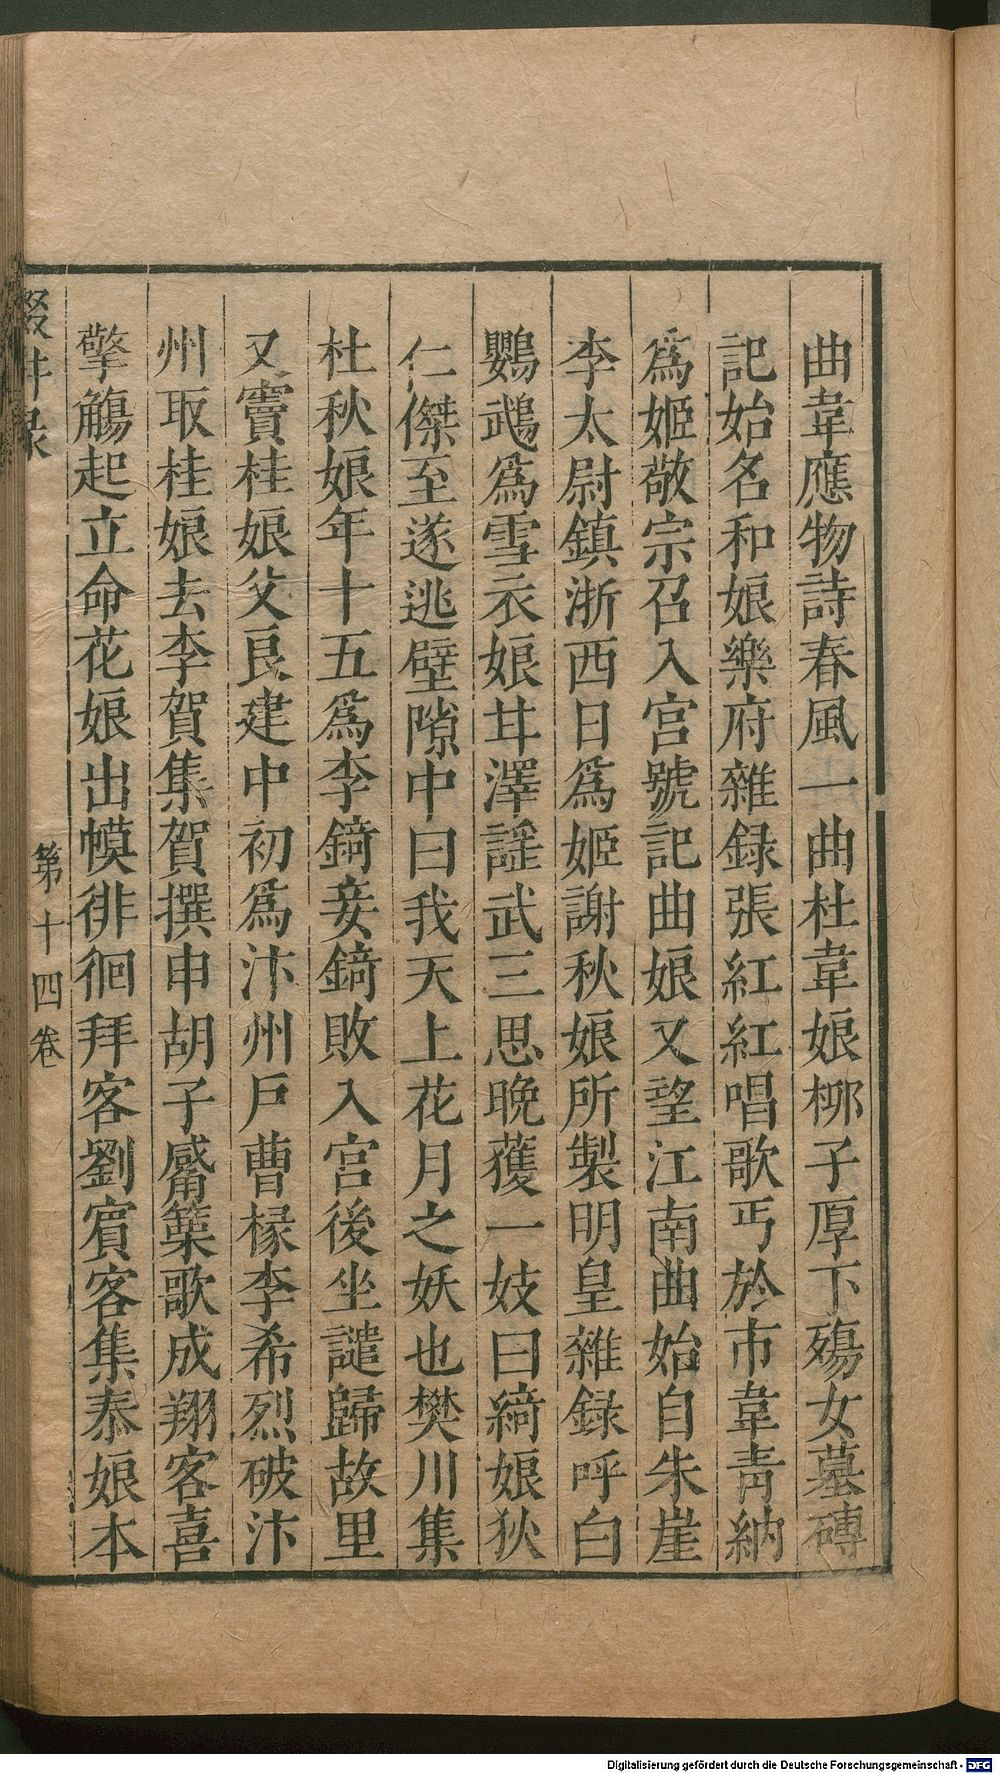 曲韋應物詩春風一曲杜韋娘柳子厚下殤女墓磚
記始名和娘樂府雜録張紅紅唱歌丐於市韋青納
爲姬敬宗召入宫號記曲娘又望江南曲始自朱崖
李太尉鎮浙西日爲姬謝秋娘所製明皇雜録呼白
鸚鵡爲雪衣娘甘澤謡武三思晚獲一妓曰綺娘狄
仁傑至遂逃壁隙中曰我天上花月之妖也樊川集
杜秋娘年十五爲李錡妾錡敗入宫後坐譴歸故里
又竇桂娘父良建中初爲汴州戸曹椽李希烈破汴
州取桂娘去李賀集賀撰申胡子觱篥歌成翔客喜
擎觴起立命花娘出幙徘徊拜客劉賓客集泰娘本
輟耕录
第十四卷
Digitalisierung gefördert durch die Deutsche Forschungsgemeinschaft - DFG